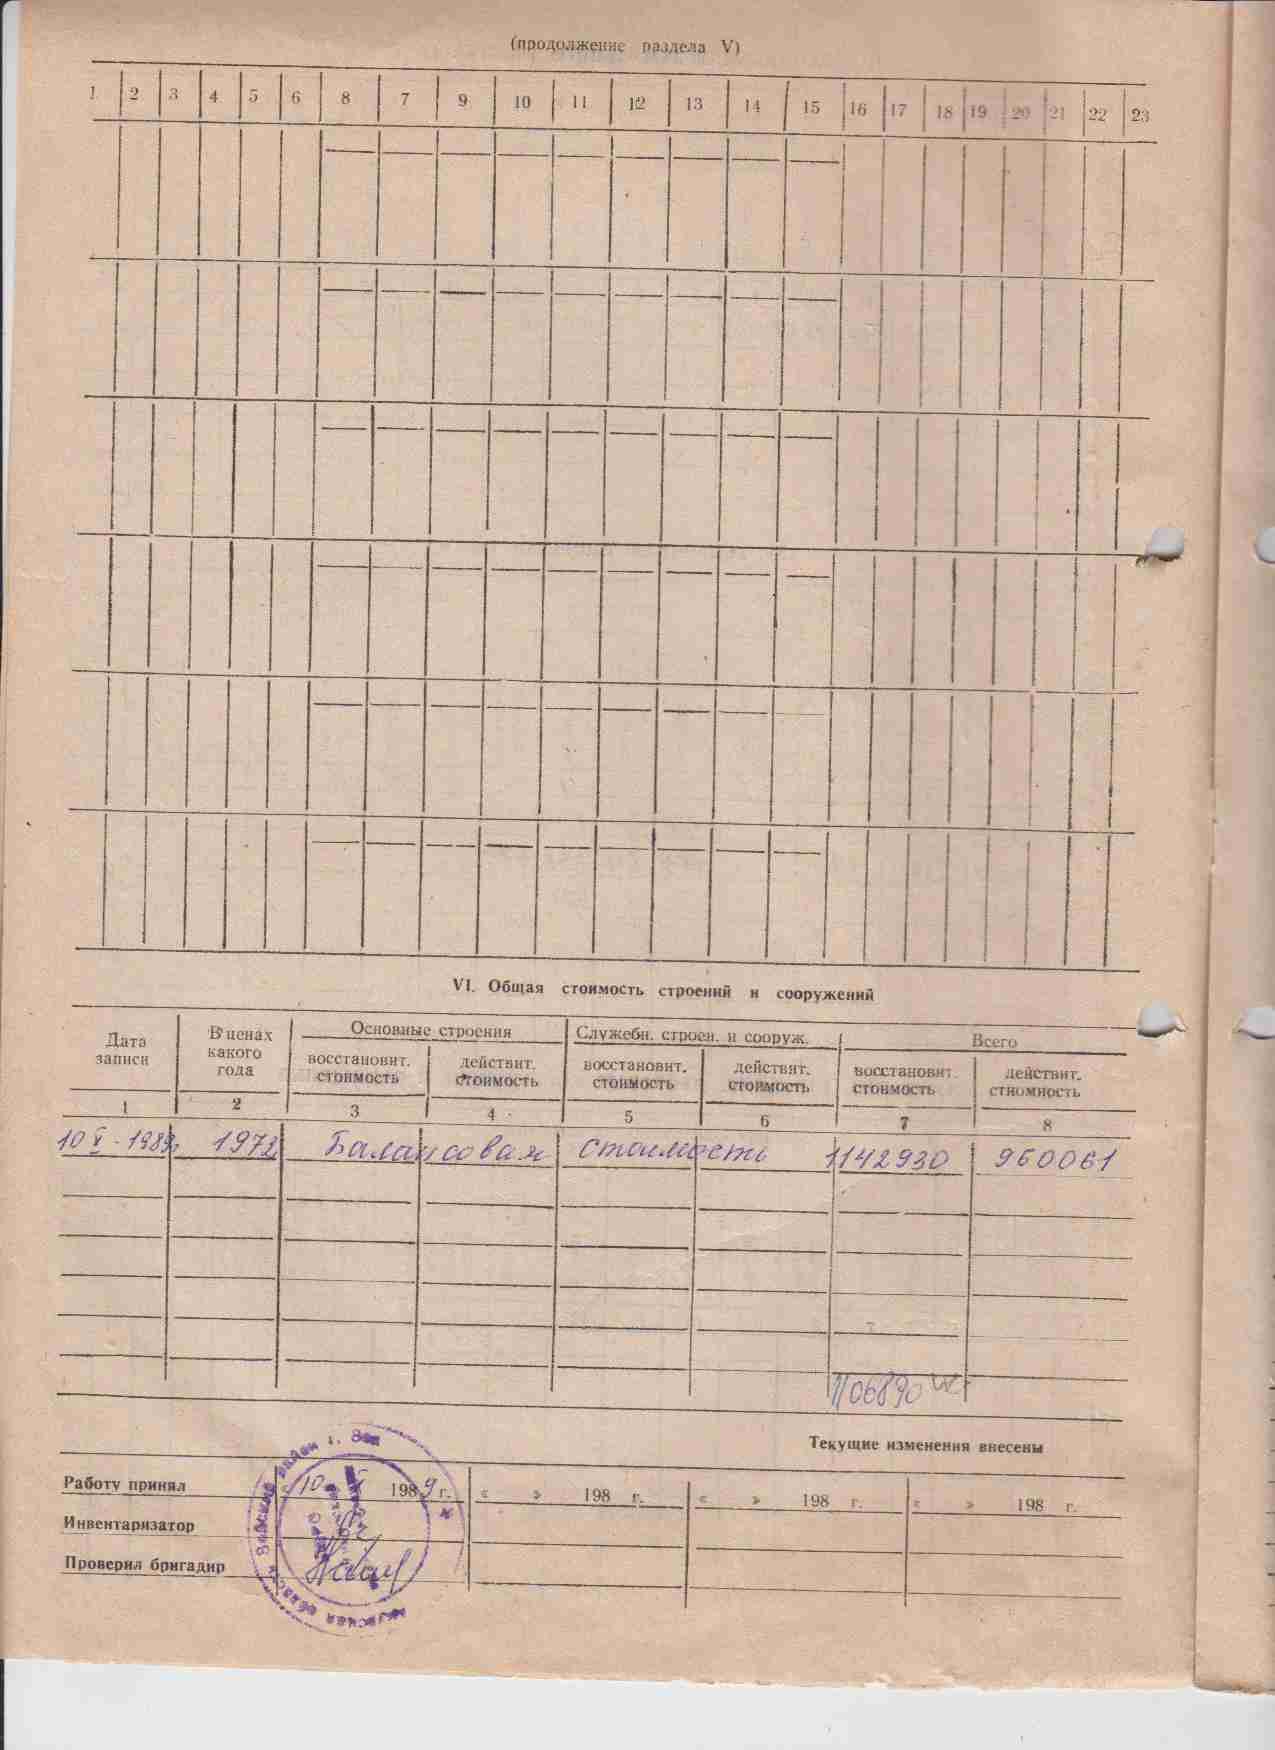 (продолжение раздела V)
1 2 3 4 5 6 8 7 9 10 11 12 13 14 15 16 17 18 19 20 21 22 23
VI. Общая стоимость строений и сооружений
Дата записи
В ценах какого года
Основные строения
Служебн. строен. и сооруж.
Всего
восстановит. стоимость
действит. стоимость
восстановит. стоимость
действит. стоимость
восстановит. стоимость
действит. стиомность
1 2 3 4 5 6 7 8
10 V - 1989г. 1972 Балансовая стоимость 1142930 960061
1106890
Текущие изменения внесены
Работу принял 10 V 1989 г. « » 198 г. « » 198 г. « » 198 г.
Инвентаризатор
Проверил бригадир